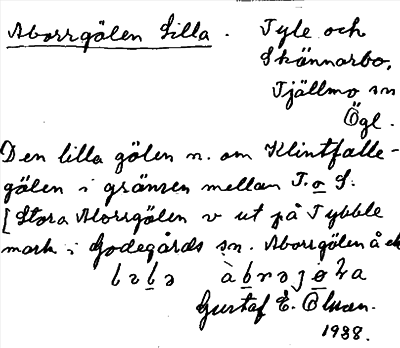 Aborrgölen Lilla. Tyle och
Skännarbo,
Tjällmo sn
Ögl.
Den lilla gölen n. om Klintfalle-
gölen i gränsen mellan T. o S.
[Stora Aborrgölen v ut på Tybble
mark i Godegårds sn. Aborrgölen å ek
Gustaf E. Olson.
1938.